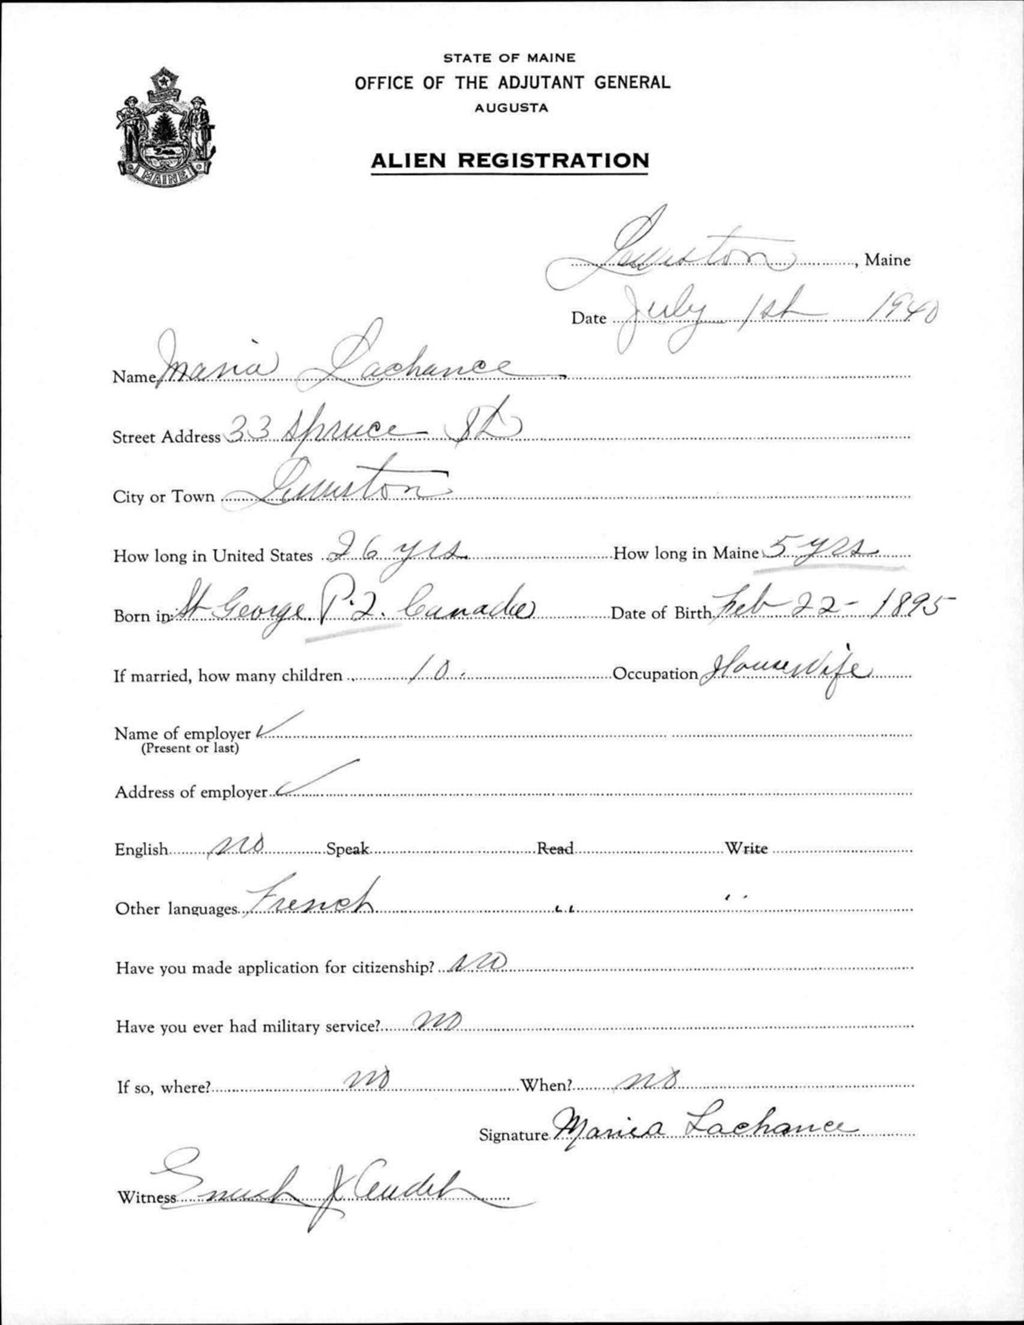 STATE OF MAINE
OFFICE OF THE ADJUTANT GENERAL
AUGUSTA
MAINE
ALIEN REGISTRATION
Lewiston, Maine
Date July 1st 1940
Name Maria Lachance
Street Address 33 Spruce St
City or Town Lewiston
How long in United States 26 yrs How long in Maine 5 yrs
Born in St George P.Q. Canada Date of Birth Feb 22 - 1895
If married, how many children 10. Occupation HouseWife
Name of employer ✓
(Present or last)
Address of employer ✓
English no Speak Read Write
Other languages French " "
Have you made application for citizenship? No
Have you ever had military service? no
If so, where? no When? no
Signature Maria Lachance
Witness J Audet